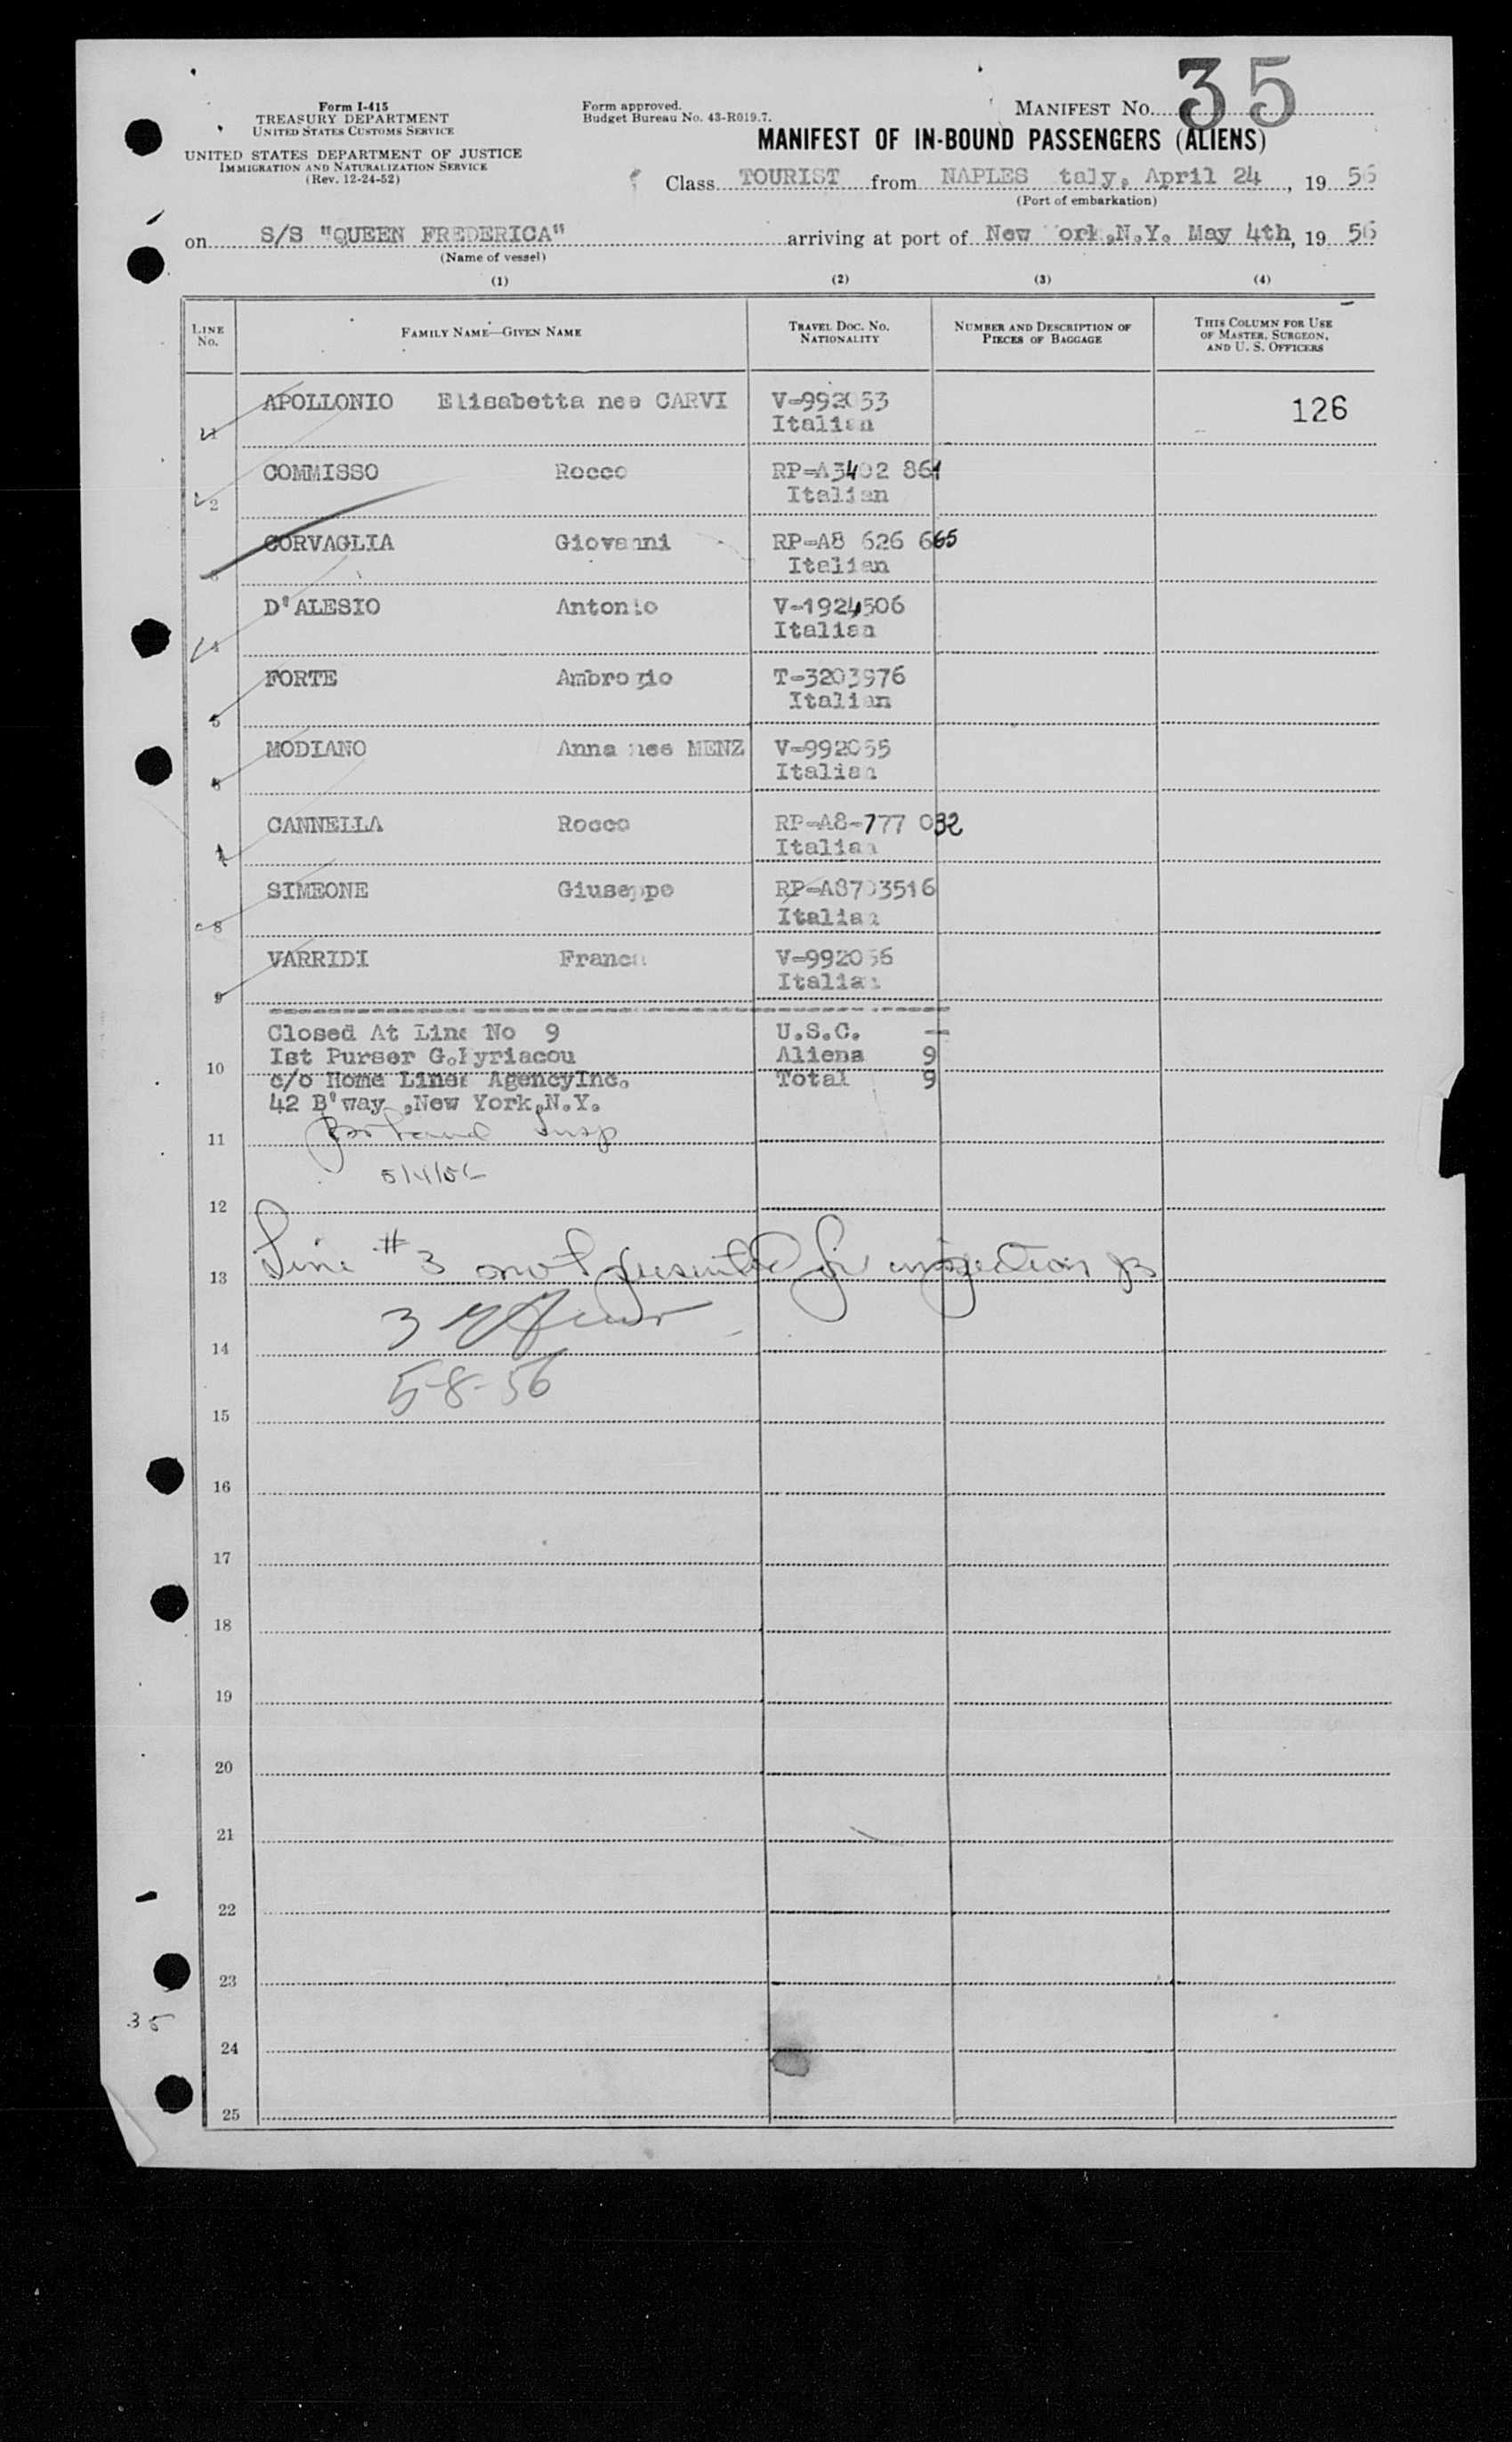 Form I-415
TREASURY DEPARTMENT
UNITED STATES CUSTOMS SERVICE
UNITED STATES DEPARTMENT OF JUSTICE
IMMIGRATION AND NATURALIZATION SERVICE
(Rev. 12-24-52)
Form approved.
Budget Bureau No. 43-R019.7.
MANIFEST NO. 35
MANIFEST OF IN-BOUND PASSENGERS (ALIENS)
Class TOURIST from NAPLES taly, April 24, 19 56
(Port of embarkation)
on S/S "QUEEN FREDERICA" arriving at port of New ork,N.Y. May 4th, 19 56
(Name of vessel)
(1) (2) (3) (4)
LINE No. FAMILY NAME—GIVEN NAME TRAVEL DOC. NO. NATIONALITY NUMBER AND DESCRIPTION OF PIECES OF BAGGAGE THIS COLUMN FOR USE OF MASTER, SURGEON, AND U. S. OFFICERS
1 APOLLONIO Elisabetta nee CARVI V-992053 126
Italian
2 COMMISSO Rocco RP-A3402 861
Italian
3 CORVAGLIA Giovanni RP-A8 626 665
Italian
4 D'ALESIO Antonio V-1924506
Italian
5 FORTE Ambrogio T-3203976
Italian
6 MODIANO Anna nee MENZ V-992055
Italian
7 CANNELLA Rocco RP-A8-777 032
Italian
8 SIMEONE Giuseppe RP-A8703516
Italian
9 VARRIDI Franca V-992056
Italian
Closed At Line No 9 U.S.C. —
10 Ist Purser G.Kyriacou Aliens 9
c/o Home Lines AgencyInc. Total 9
42 B'way ,New York,N.Y.
11 Insp
5/4/56
12
Line #3 not presented for inspection
13
3
14
5-8-56
15
16
17
18
19
20
21
22
23
35
24
25